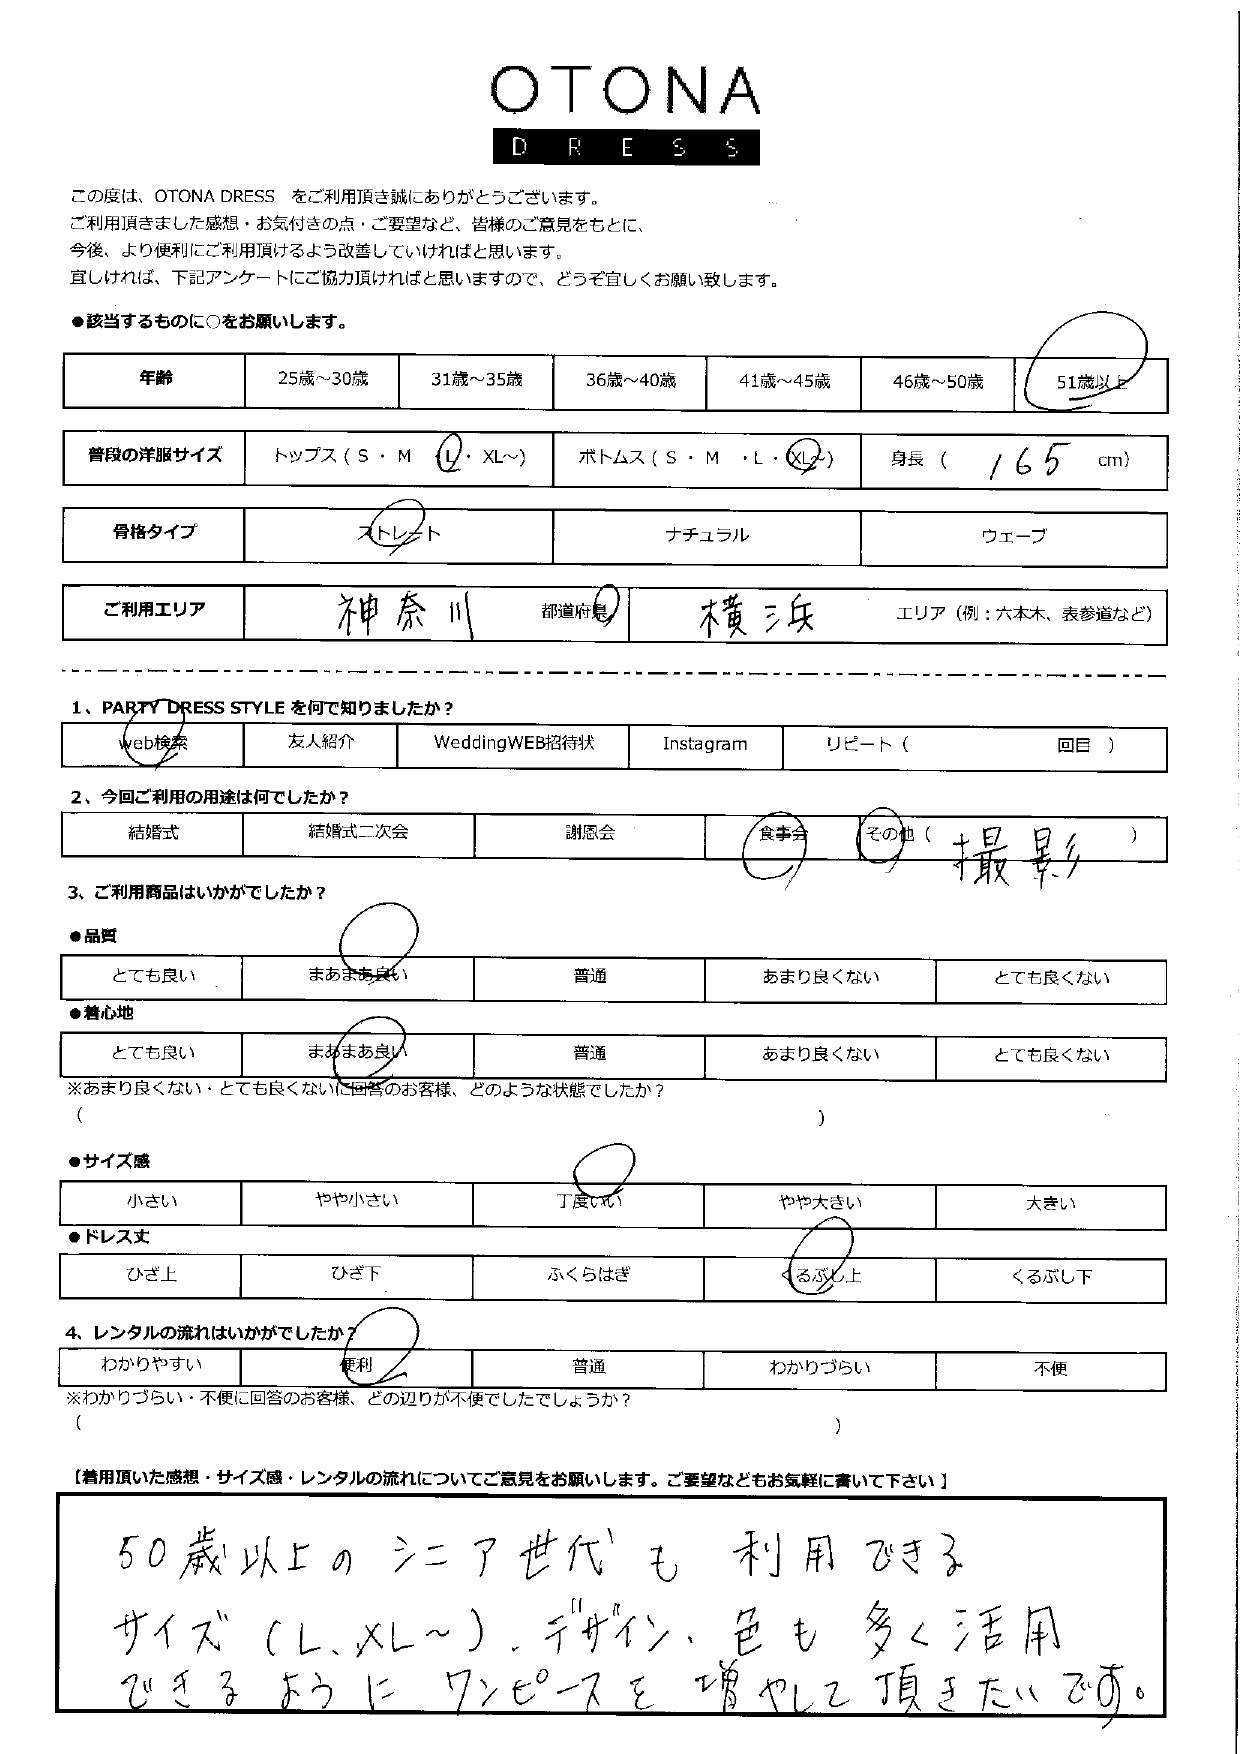 OTONA
DRESS
この度は、OTONA DRESS をご利用頂き誠にありがとうございます。
ご利用頂きました感想・お気付きの点・ご要望など、皆様のご意見をもとに、
今後、より便利にご利用頂けるよう改善していければと思います。
宜しければ、下記アンケートにご協力頂ければと思いますので、どうぞ宜しくお願い致します。
●該当するものに○をお願いします。
年齢 25歳～30歳 31歳～35歳 36歳～40歳 41歳～45歳 46歳～50歳 51歳以上
普段の洋服サイズ トップス ( S ・ M ・L・ XL～) ボトムス ( S ・ M ・L・XL～) 身長 ( 165 cm)
骨格タイプ ストレート ナチュラル ウェーブ
ご利用エリア 神奈川 都道府県 横浜 エリア（例：六本木、表参道など）
1、PARTY DRESS STYLE を何で知りましたか？
web検索 友人紹介 WeddingWEB招待状 Instagram リピート ( 回目 )
2、今回ご利用の用途は何でしたか？
結婚式 結婚式二次会 謝恩会 食事会 その他 ( 撮影 )
3、ご利用商品はいかがでしたか？
●品質
とても良い まあまあ良い 普通 あまり良くない とても良くない
●着心地
とても良い まあまあ良い 普通 あまり良くない とても良くない
※あまり良くない・とても良くないに回答のお客様、どのような状態でしたか？
( )
●サイズ感
小さい やや小さい 丁度いい やや大きい 大きい
●ドレス丈
ひざ上 ひざ下 ふくらはぎ くるぶし上 くるぶし下
4、レンタルの流れはいかがでしたか？
わかりやすい 便利 普通 わかりづらい 不便
※わかりづらい・不便に回答のお客様、どの辺りが不便でしたでしょうか？
( )
【着用頂いた感想・サイズ感・レンタルの流れについてご意見をお願いします。ご要望などもお気軽に書いて下さい】
50歳以上の シニア世代も 利用できる
サイズ (L、XL～)、デザイン、色も 多く活用
できるように ワンピースを 増やして頂きたいです。